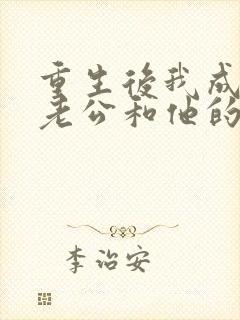 重生後我成
老公和他的
李治安